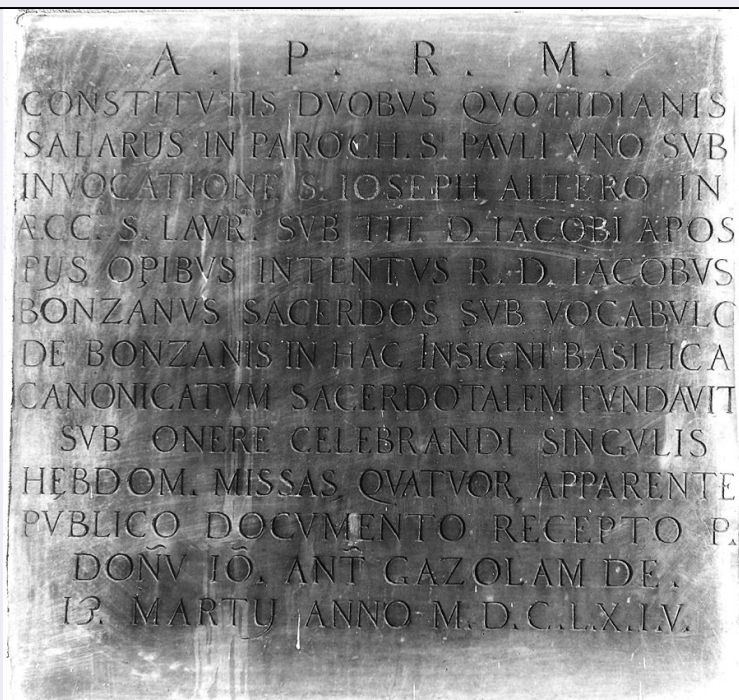 A. P. R. M.
CONSTITVTIS DVOBVS QVOTIDIANIS
SALARUS IN PAROCH. S. PAVLI VNO SVB
INVOCATIONE S. IOSEPH ALTERO IN
ÆCC. S. LAVR. SVB TIT. D. IACOBI APOS
PIJS OPIBVS INTENTVS R. D. IACOBVS
BONZANVS SACERDOS SVB VOCABVLO
DE BONZANIS IN HAC INSIGNI BASILICA
CANONICATVM SACERDOTALEM FVNDAVIT
SVB ONERE CELEBRANDI SINGVLIS
HEBDOM. MISSAS QVATVOR, APPARENTE
PVBLICO DOCVMENTO RECEPTO P.
DOÑV IÕ. ANT̃ GAZOLAM DE.
13. MARTIJ ANNO M.D.C.L.X.I.V.